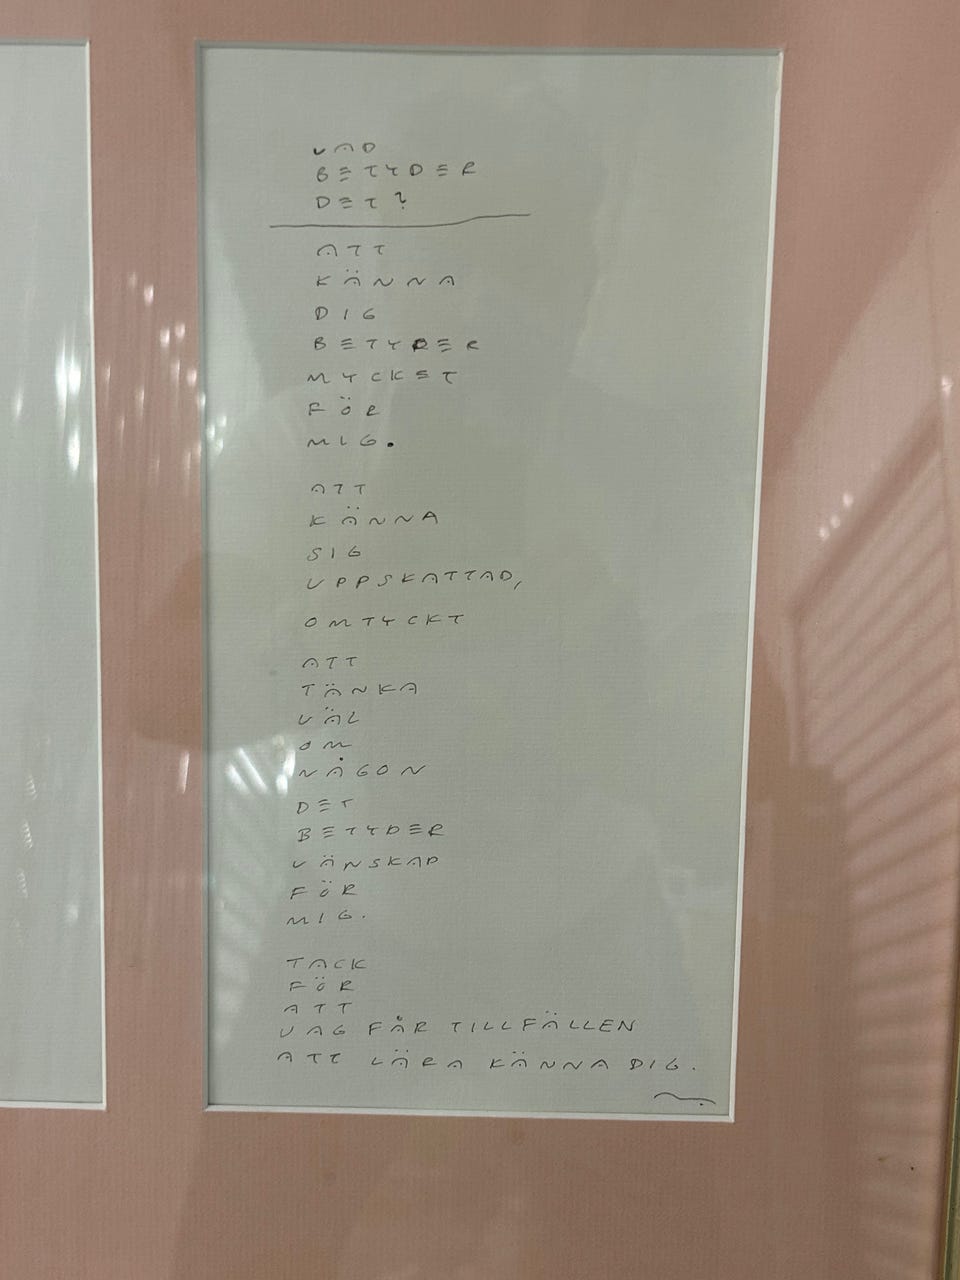 VAD
BETYDER
DET?
ATT
KÄNNA
DIG
BETYDER
MYCKET
FÖR
MIG.
ATT
KÄNNA
SIG
UPPSKATTAD,
OMTYCKT
ATT
TÄNKA
VÄL
OM
NÅGON
DET
BETYDER
VÄNSKAP
FÖR
MIG.
TACK
FÖR
ATT
JAG FÅR TILLFÄLLEN
ATT LÄRA KÄNNA DIG.